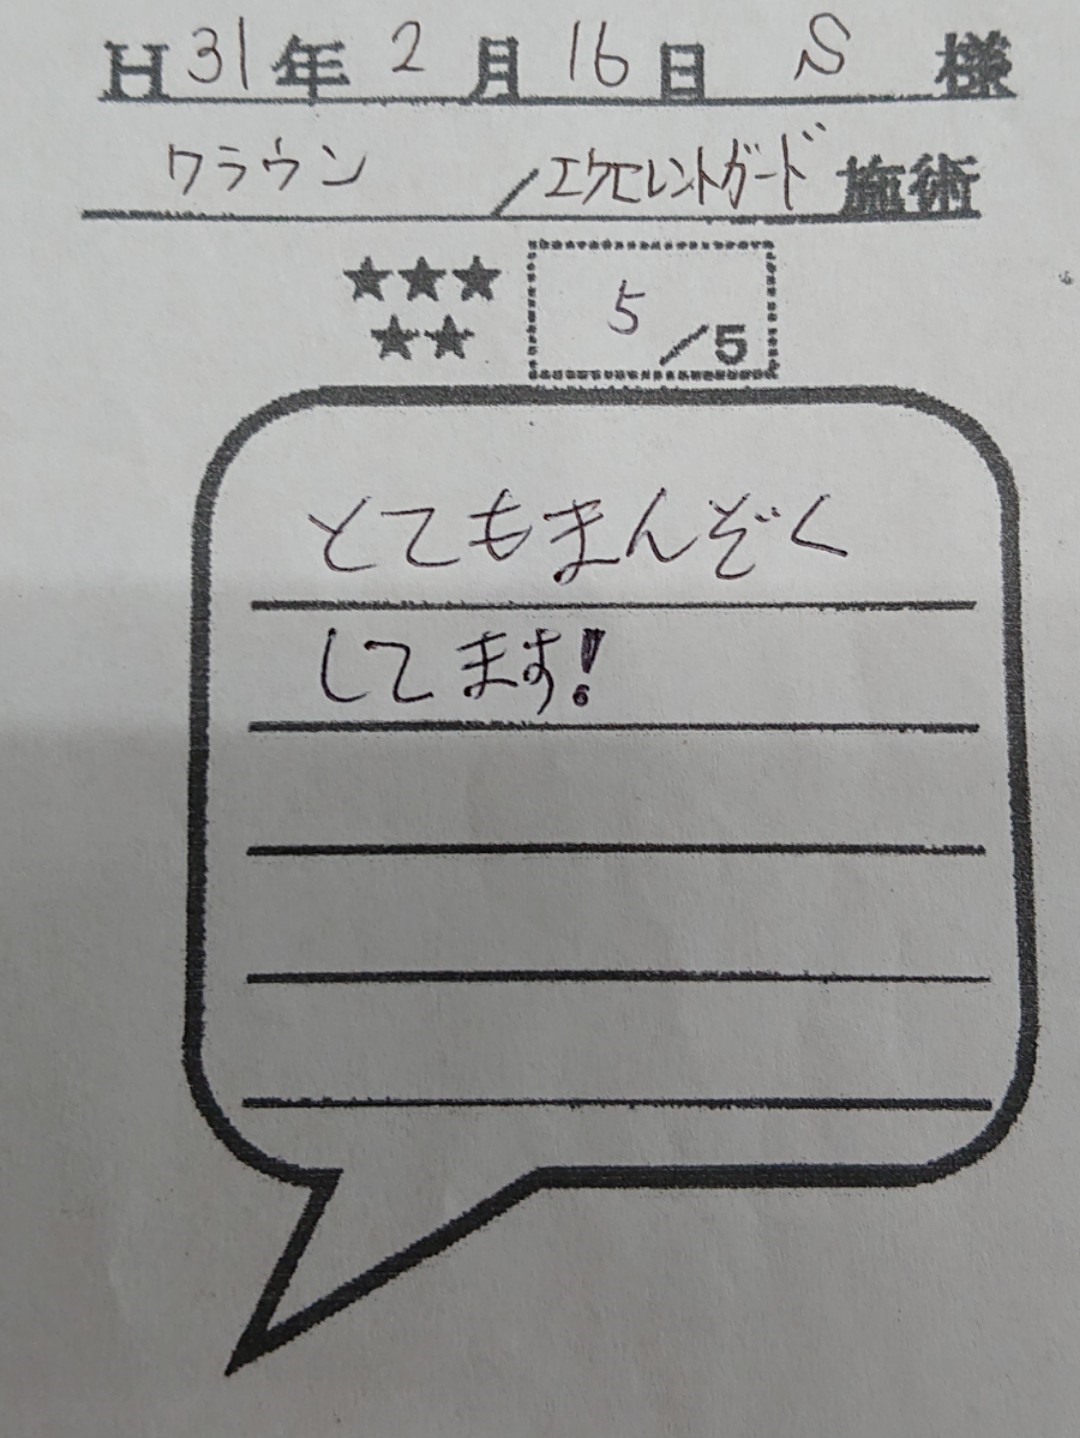 H31年2月16日 S 様
クラウン / エクセレントガード 施術
★★★
★★ 5/5
とてもまんぞく
してます!